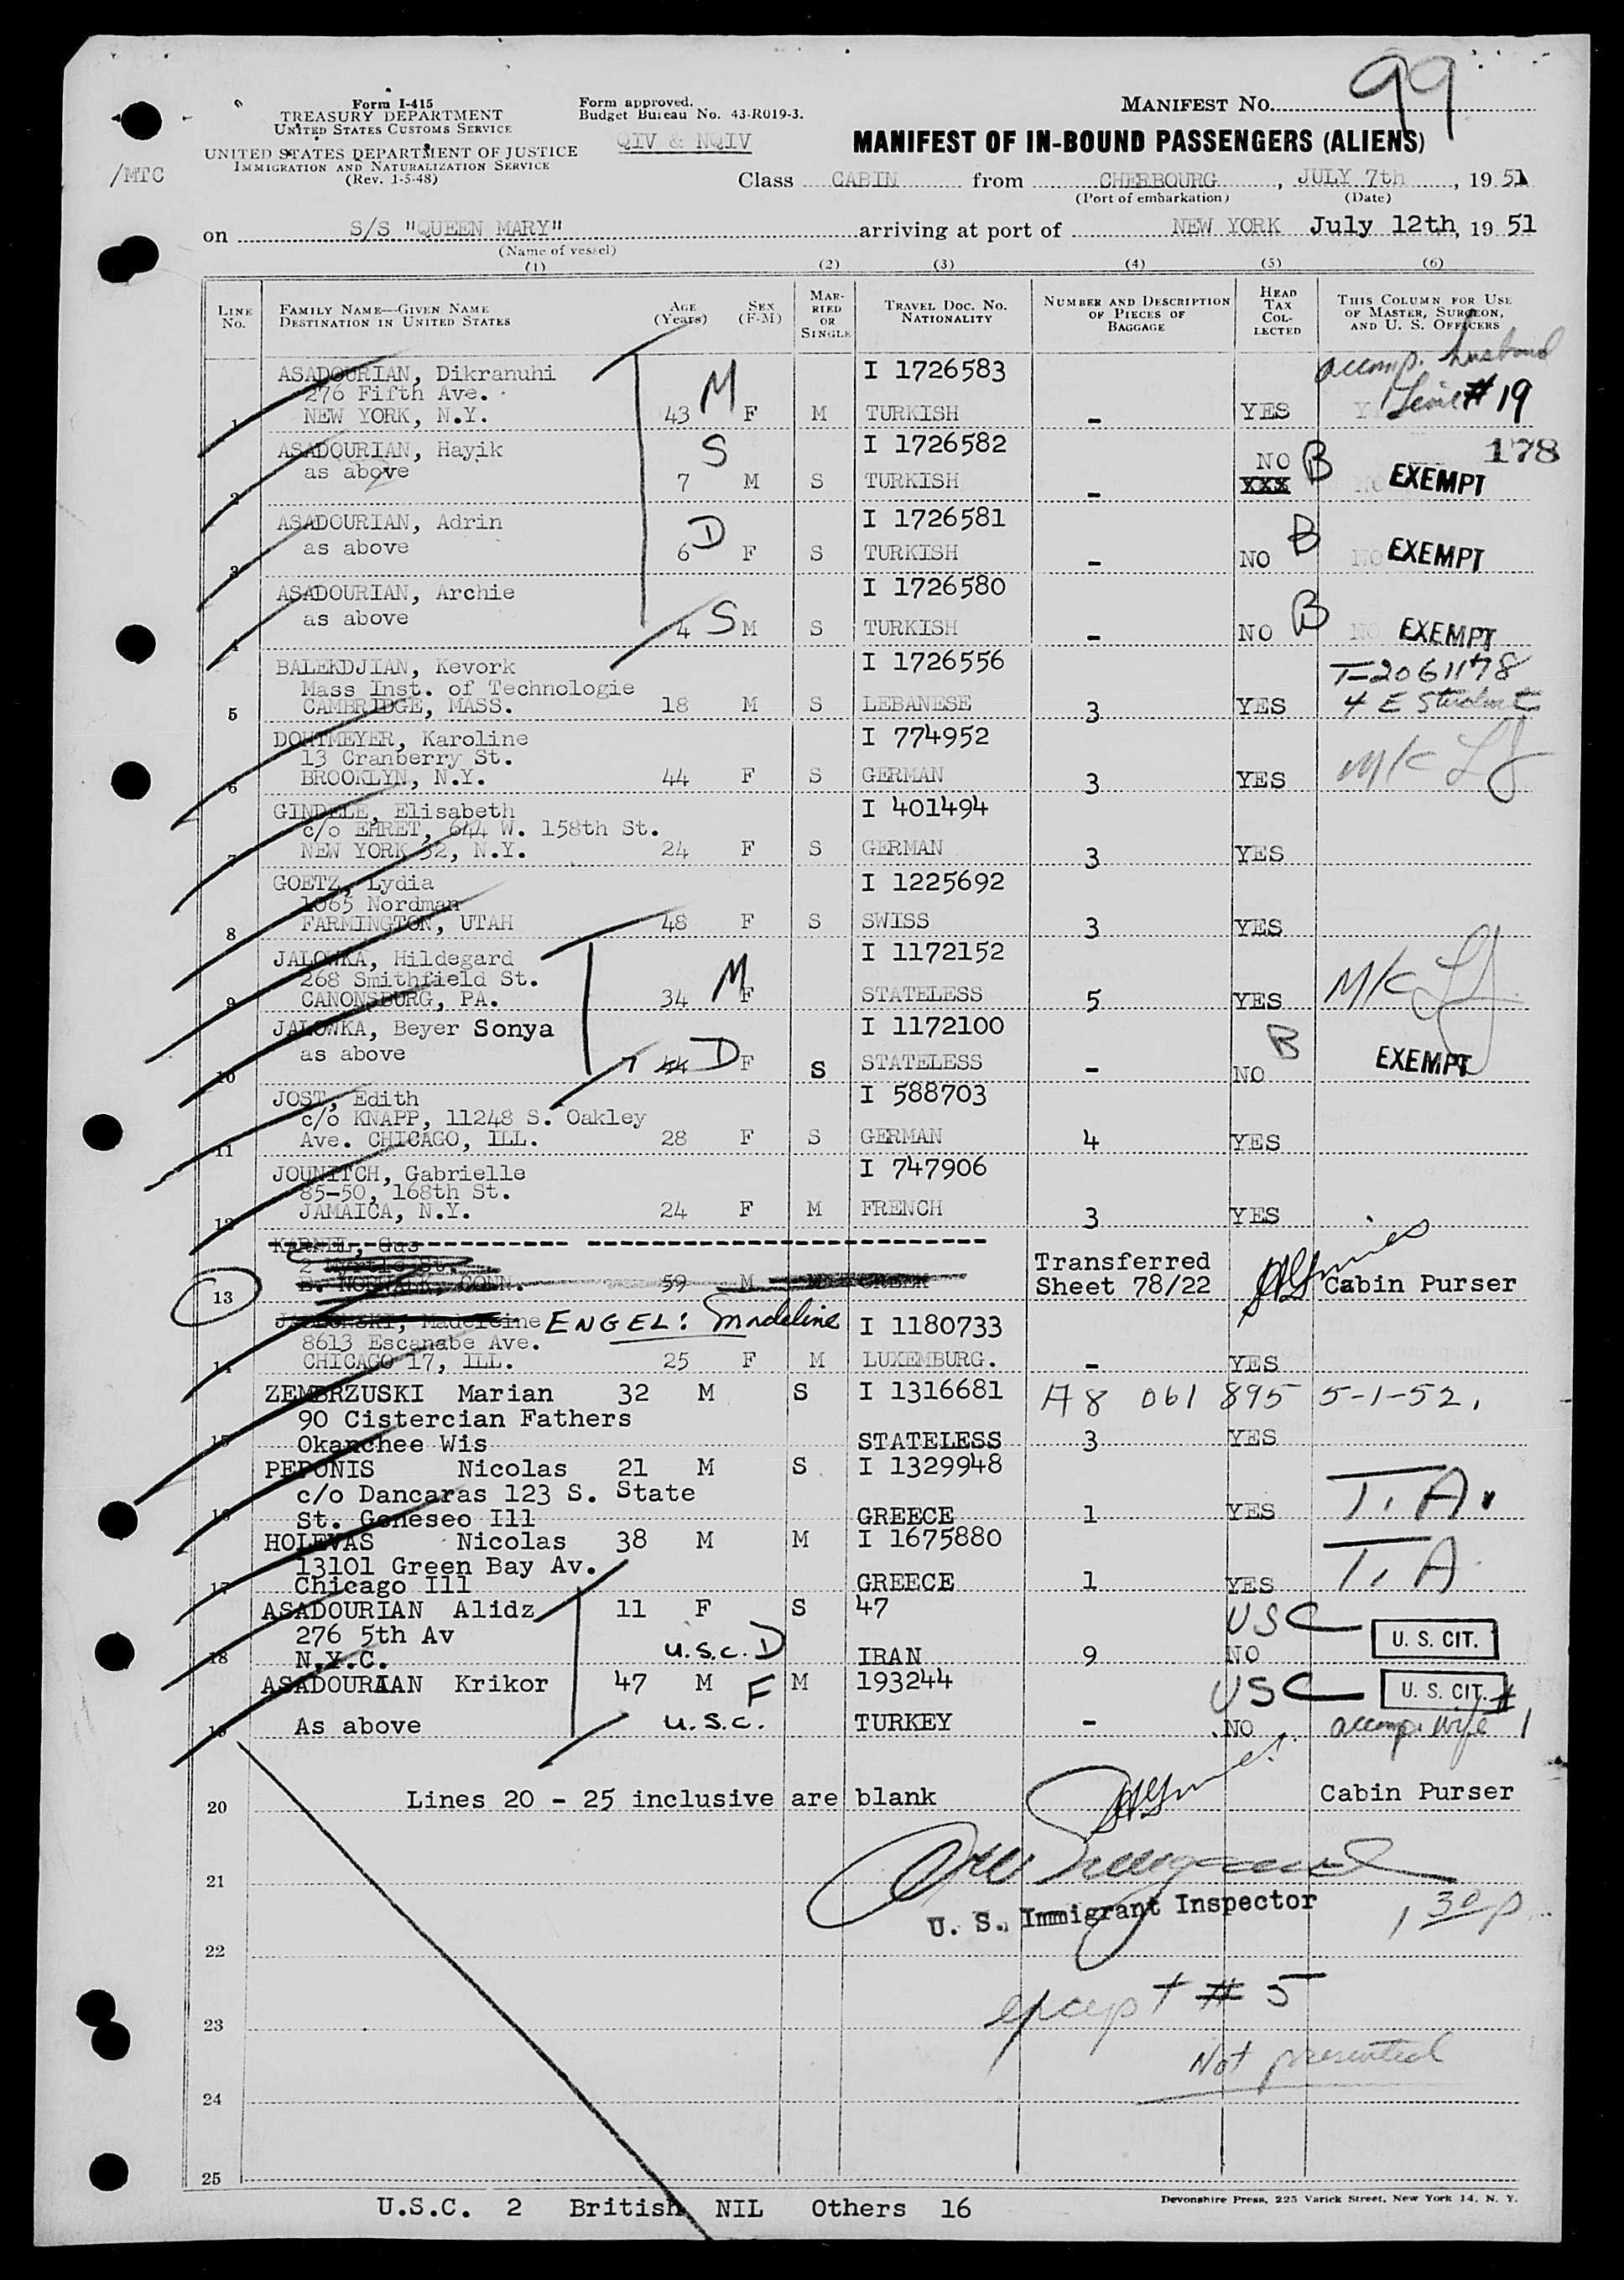 99
Form I-415
TREASURY DEPARTMENT
UNITED STATES CUSTOMS SERVICE
UNITED STATES DEPARTMENT OF JUSTICE
IMMIGRATION AND NATURALIZATION SERVICE
(Rev. 1-5-48)
/MTC
Form approved.
Budget Bureau No. 43-R019-3.
QIV & NQIV
MANIFEST NO.
MANIFEST OF IN-BOUND PASSENGERS (ALIENS)
Class CABIN from CHERBOURG, JULY 7th, 1951
(Port of embarkation) (Date)
on S/S "QUEEN MARY" arriving at port of NEW YORK July 12th, 1951
(Name of vessel)
(1) (2) (3) (4) (5) (6)
LINE No. FAMILY NAME—GIVEN NAME DESTINATION IN UNITED STATES AGE (Years) SEX (F-M) MARRIED OR SINGLE TRAVEL DOC. NO. NATIONALITY NUMBER AND DESCRIPTION OF PIECES OF BAGGAGE HEAD TAX COLLECTED THIS COLUMN FOR USE OF MASTER, SURGEON, AND U. S. OFFICERS
ASADOURIAN, Dikranuhi I 1726583 accomp. husband
276 Fifth Ave. M Line #19
1 NEW YORK, N.Y. 43 F M TURKISH - YES
ASADOURIAN, Hayik S I 1726582 NO B 178
as above
2 7 M S TURKISH - XXX EXEMPT
ASADOURIAN, Adrin I 1726581
as above D B
3 6 F S TURKISH - NO NO EXEMPT
ASADOURIAN, Archie I 1726580
as above S B
4 4 M S TURKISH - NO NO EXEMPT
BALEKDJIAN, Kevork I 1726556 T-2061178
Mass Inst. of Technologie
5 CAMBRIDGE, MASS. 18 M S LEBANESE 3 YES 4 E Student
DOHTMEYER, Karoline I 774952
13 Cranberry St.
6 BROOKLYN, N.Y. 44 F S GERMAN 3 YES M/K
GINDELE, Elisabeth I 401494
c/o EHRET, 644 W. 158th St.
7 NEW YORK 32, N.Y. 24 F S GERMAN 3 YES
GOETZ, Lydia I 1225692
1065 Nordman
8 FARMINGTON, UTAH 48 F S SWISS 3 YES
JALOWKA, Hildegard I 1172152
268 Smithfield St. M
9 CANONSBURG, PA. 34 F STATELESS 5 YES M/K
JALOWKA, Beyer Sonya I 1172100 B
as above
10 7 44 D F S STATELESS - NO EXEMPT
JOST, Edith I 588703
c/o KNAPP, 11248 S. Oakley
11 Ave. CHICAGO, ILL. 28 F S GERMAN 4 YES
JOUNITCH, Gabrielle I 747906
85-50, 168th St.
12 JAMAICA, N.Y. 24 F M FRENCH 3 YES
KARNEL, Gus
2 Myrtle St. Transferred
13 E. NORWALK, CONN. 59 M GREEK Sheet 78/22 Cabin Purser
Madeleine ENGEL: Madeline I 1180733
8613 Escanabe Ave.
14 CHICAGO 17, ILL. 25 F M LUXEMBURG. - YES
ZEMBRZUSKI Marian 32 M S I 1316681 A8 061 895 5-1-52.
90 Cistercian Fathers
15 Okanchee Wis STATELESS 3 YES
PEPONIS Nicolas 21 M S I 1329948
c/o Dancaras 123 S. State
16 St. Geneseo Ill GREECE 1 YES T.A.
HOLEVAS Nicolas 38 M M I 1675880
13101 Green Bay Av.
17 Chicago Ill GREECE 1 YES T.A
ASADOURIAN Alidz 11 F S 47 USC
276 5th Av U.S.C. D U. S. CIT.
18 N.Y.C. IRAN 9 NO
ASADOURIAN Krikor 47 M F M 193244 USC U. S. CIT.
19 As above U.S.C. TURKEY - NO accomp. wife #1
20 Lines 20 - 25 inclusive are blank Cabin Purser
21
U. S. Immigrant Inspector 1 30 p
22
except # 5
23
Not presented
24
25
U.S.C. 2 British NIL Others 16
Devonshire Press, 225 Varick Street, New York 14, N. Y.